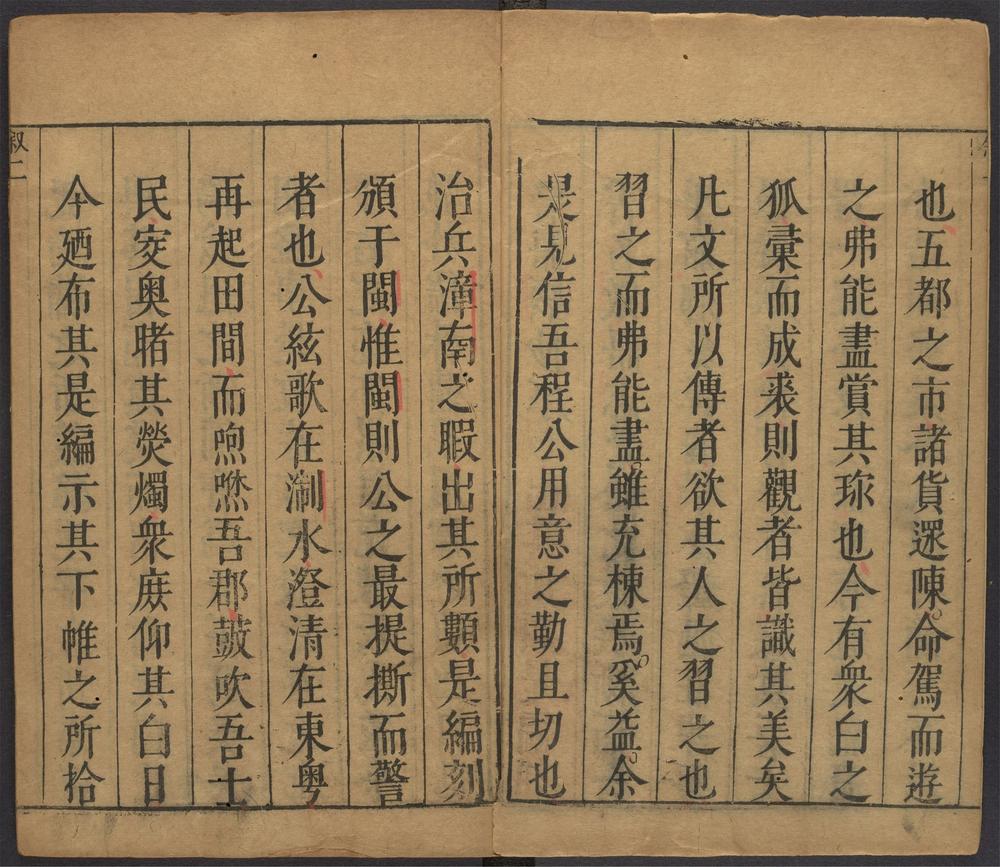 也五都之市諸貨遝陳命駕而遊
之弗能盡賞其珎也今有衆白之
狐彚而成裘則觀者皆識其美矣
凡文所以傳者欲其人之習之也
習之而弗能盡雖充棟焉奚益余
是見信吾程公用意之勤且切也
治兵漳南之暇出其所類是編刻
頒于閩惟閩則公之最提撕而警
者也公絃歌在淛水澄清在東粤
再起田間而喣喣吾郡鼓吹吾士
民突奥睹其熒燭衆庻仰其白日
今廼布其是編示其下帷之所拾
叙二